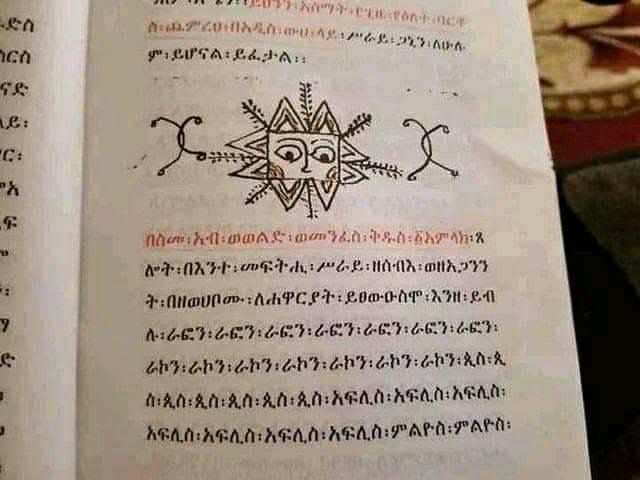 ይህንን፡አስማት፡የጊዜ፡የዕለት፡ባርቶ
ስ፡ጨምረህ፡በአዲስ፡ውሀ፡ላይ፡ሥራይ፡ጋኔን፡ለሁሉ
ም፡ይሆናል፡ይፈታል፡፡
በስመ፡አብ፡ወወልድ፡ወመንፈስ፡ቅዱስ፡፩አምላክ፡ጸ
ሎት፡በእንተ፡መፍትሒ፡ሥራይ፡ዘሰብእ፡ወዘአጋንን
ት፡በዘወሀቦሙ፡ለሐዋርያት፡ይፀውዑስሞ፡እንዘ፡ይብ
ሉ፡ራፎን፡ራፎን፡ራፎን፡ራፎን፡ራፎን፡ራፎን፡ራፎን፡
ራኮን፡ራኮን፡ራኮን፡ራኮን፡ራኮን፡ራኮን፡ራኮን፡ጲስ፡ጲ
ስ፡ጲስ፡ጲስ፡ጲስ፡ጲስ፡ጲስ፡አፍሊስ፡አፍሊስ፡አፍሊስ፡
አፍሊስ፡አፍሊስ፡አፍሊስ፡አፍሊስ፡ምልዮስ፡ምልዮስ፡